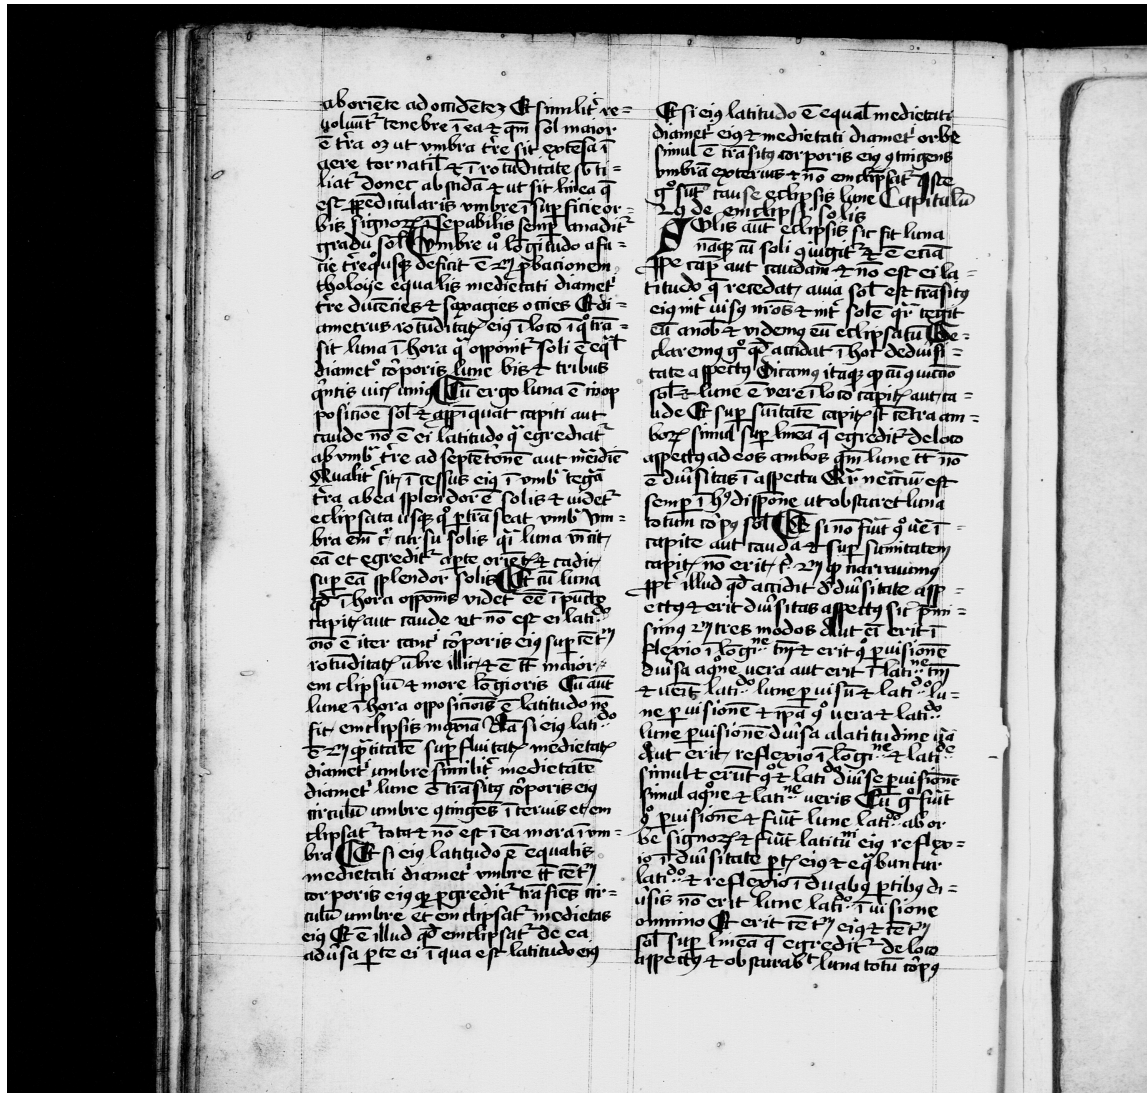 ab oriēte ad occidētez Et similit͛ re=
voluūt͛ tenebre ī ea & qm̄ sol maior
ē t͛ra oꝫ ut vmbra t͛re sit extēsa ī
aere tornatil̄ & ī rotūditate sbti=
liat͛ donec abscīda & ut sit linea q̄
est ꝑpēdicularis vmbre ī suꝑficie or=
bis signoꝝ īsepabilis semꝑ
gradu sol̄ Vmbre uͦ lōgitudo a fa=
cie t͛re quousqꝫ deficit ē ꝓbacionem
tholoȳe equalis medietati diamet͛
t͛re ducēcies & sexagies occies Et di=
ametrus rotūditatꝭ eiꝰ ī loco ī q° trā=
sit luna ī hora q̄ opponit͛ soli ē eq̄l̄
diamet° cōꝑoris lune bis & tribus
q̄ntis Cū ergo luna ē ī op
positiōe sol̄ & appīquat capiti aut
caude nō ē ei latitudo q̄ egrediat͛
ab vmb͛ t͛re ad septētōnē aut m͛idiē
Qualit͛ sit ī cessus eiꝰ ī vmb͛ tegēs
t͛ra ab ea splendorē solis & videt͛
eclipsata usqꝫ q° ꝑtrāseat vmb͛ vm=
bra em̄ cursu solis q̄ luna vīcit
eā et egredit͛ a ꝑte oriētꝭ & cadit
suꝑ eā splendor solis Et cū luna
qd̄ ī hora opponis videt͛ eē ī pūcto
capitꝭ aut caude ut nō est ei lati.do
oīo ē iter cent͛ cōꝑoris eiꝰ suꝑ cēt͛
rotūditatꝭ ūbre illic & ē tc̄ maior
em clipsiū & more lōgioris Cū aūt
lune ī hora opposiciōis ē latitudo nō
fit emclipsis magna Nā si eiꝰ lati.do
ē qᷓtitatē suꝑfluitatꝭ medietatꝭ
diamet͛ umbre similit͛ medietatē
diamet͛ lune ē trāsitꝰ cōꝑoris eiꝰ
circulū umbre ꝯtingēs īterius et em
clipsat͛ tota & nō est ī ea mora ī vm=
bra Et si eiꝰ latitudo ē equalis
medietati diamet͛ vmbre tc̄ cēt͛
corꝑoris eiꝰ ꝑgredit͛ trāsiēs cir=
culū umbre et em clipsat͛ medietas
eiꝰ Et ē illud qd̄ emclipsat͛ de ea
adūsa ꝑte ei ī qua est latitudo eiꝰ
Et si eiꝰ latitudo ē equal̄ medietati
diamet͛ eiꝰ & medietati diamet͛ orbe
simul ē trāsitꝰ corꝑoris eiꝰ ꝯtingens
vmbrā exterius & nō emclipsat͛ Iste
g° sūt cause eclipsis lune Capitulū
29 de emclipsi solis
Solis aūt eclipsis sic fit luna
nāqꝫ cū soli ꝯiūgit͛ & ē eciā
ꝓpe capᷓ aut caudam & nō est ei la=
titudo q̄ recedat a via sol̄ est trāsitꝰ
eiꝰ int͛ visꝰ nr̄os & int͛ solē qr̄ tegit
eū a nob̄ & videmꝰ eū eclipsatū De=
claremꝰ g° qd̄ accidat ī hoc de diūsi=
tate aspectꝰ Dicamꝰ itaqꝫ qꝫ cū ꝯiūccio
sol̄ & lune ē vere ī loco capitꝭ aut ca=
ude Et suꝑ sūitatē capitꝭ st̄ cētra am=
boꝝ simul suꝑ lineā q̄ egredit͛ de loco
aspectꝰ ad eos ambos qm̄ lune tc̄ nō
ē diūsitas ī aspectu Qr̄ neccīū est
semꝑ ī hꝰ dispōne ut obscuret luna
totum cōꝑꝰ sol̄ Et si nō fuīt ꝯ ūe ī=
capite aut cauda & suꝑ sumitatem
capitꝭ nō erit qꝫ narrauimꝰ
ꝓpt͛ illud qd̄ accidit d̄ diūsitate asp=
ectꝰ & erit diūsitas aspectꝰ sic p̄mi=
simꝰ tres modos Aut eī erit ī
flexio ī lōgi.ne tm̄ & erit ꝯ° ꝑ visionē
diūsa a ꝯ°ne vera aut erit ī lati.ne tm̄
& uert͛ lati.do lune ꝑ visū & lati.do lu=
ne ꝑ visionē & ip̄a ꝯ° vera & lati.do
lune ꝑ visionē diūsa a latitudine ūa
Aut erit reflexio ī lōgi.ne & lati.de
simul & erūt ꝯ° & lati.do diūse ꝑ visionē
simul a ꝯ°ne & lati.ne veris Cū g° fuīt
ꝯ° ꝑ visionē & fuīt lune lati.do ab or
be signoꝝ & fuīt latitū eiꝰ reflex=
io ī diūsitate ꝑtꝭ eiꝰ & eq̄buntur
lati.do & reflexio ī duabꝰ ꝑtibꝰ di=
ūsis nō erit lune lati.do ī visione
omnino Et erit cēt͛ eiꝰ & cēt͛
sol̄ suꝑ lineā q̄ egredit͛ de loco
aspectꝰ & obscurabit luna totū cōꝑꝰ